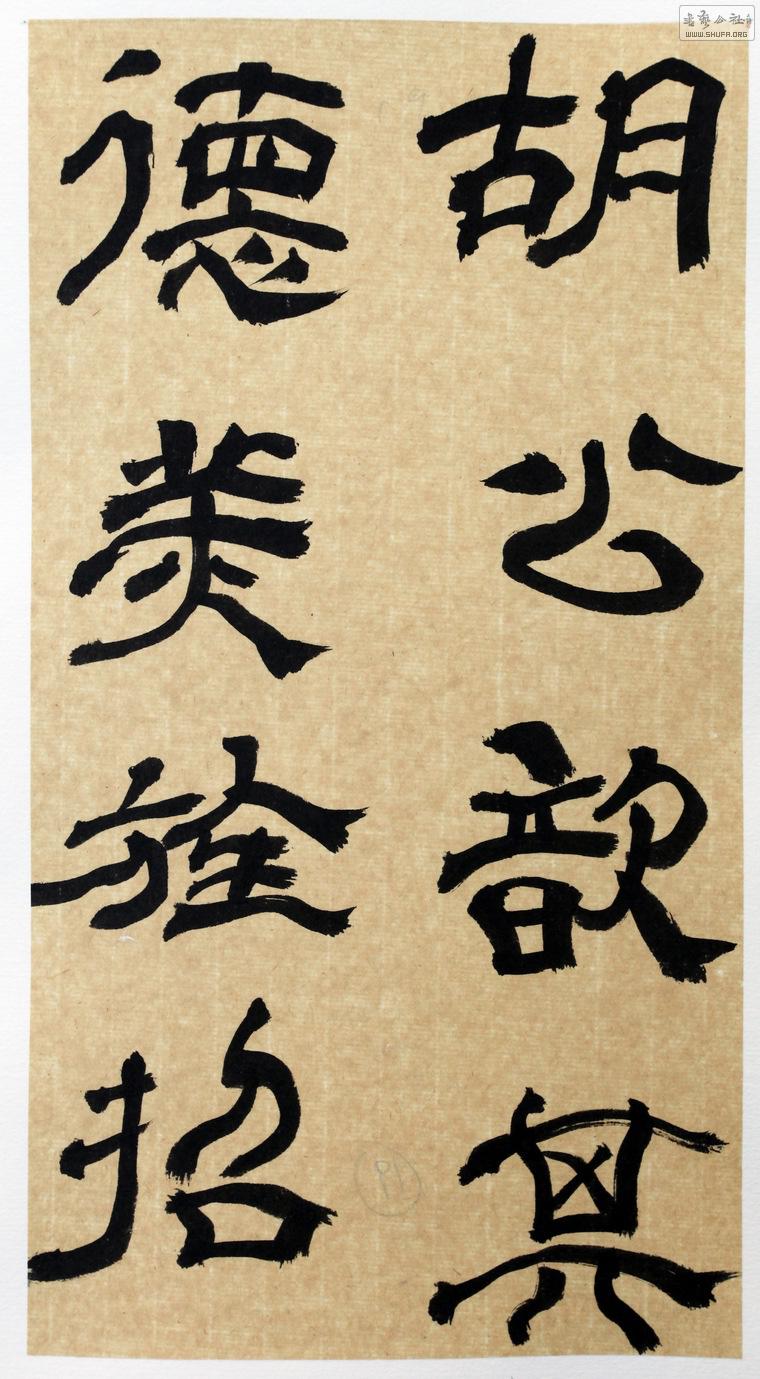 胡公歆其
德美旌招
書藝公社
WWW.SHUFA.ORG